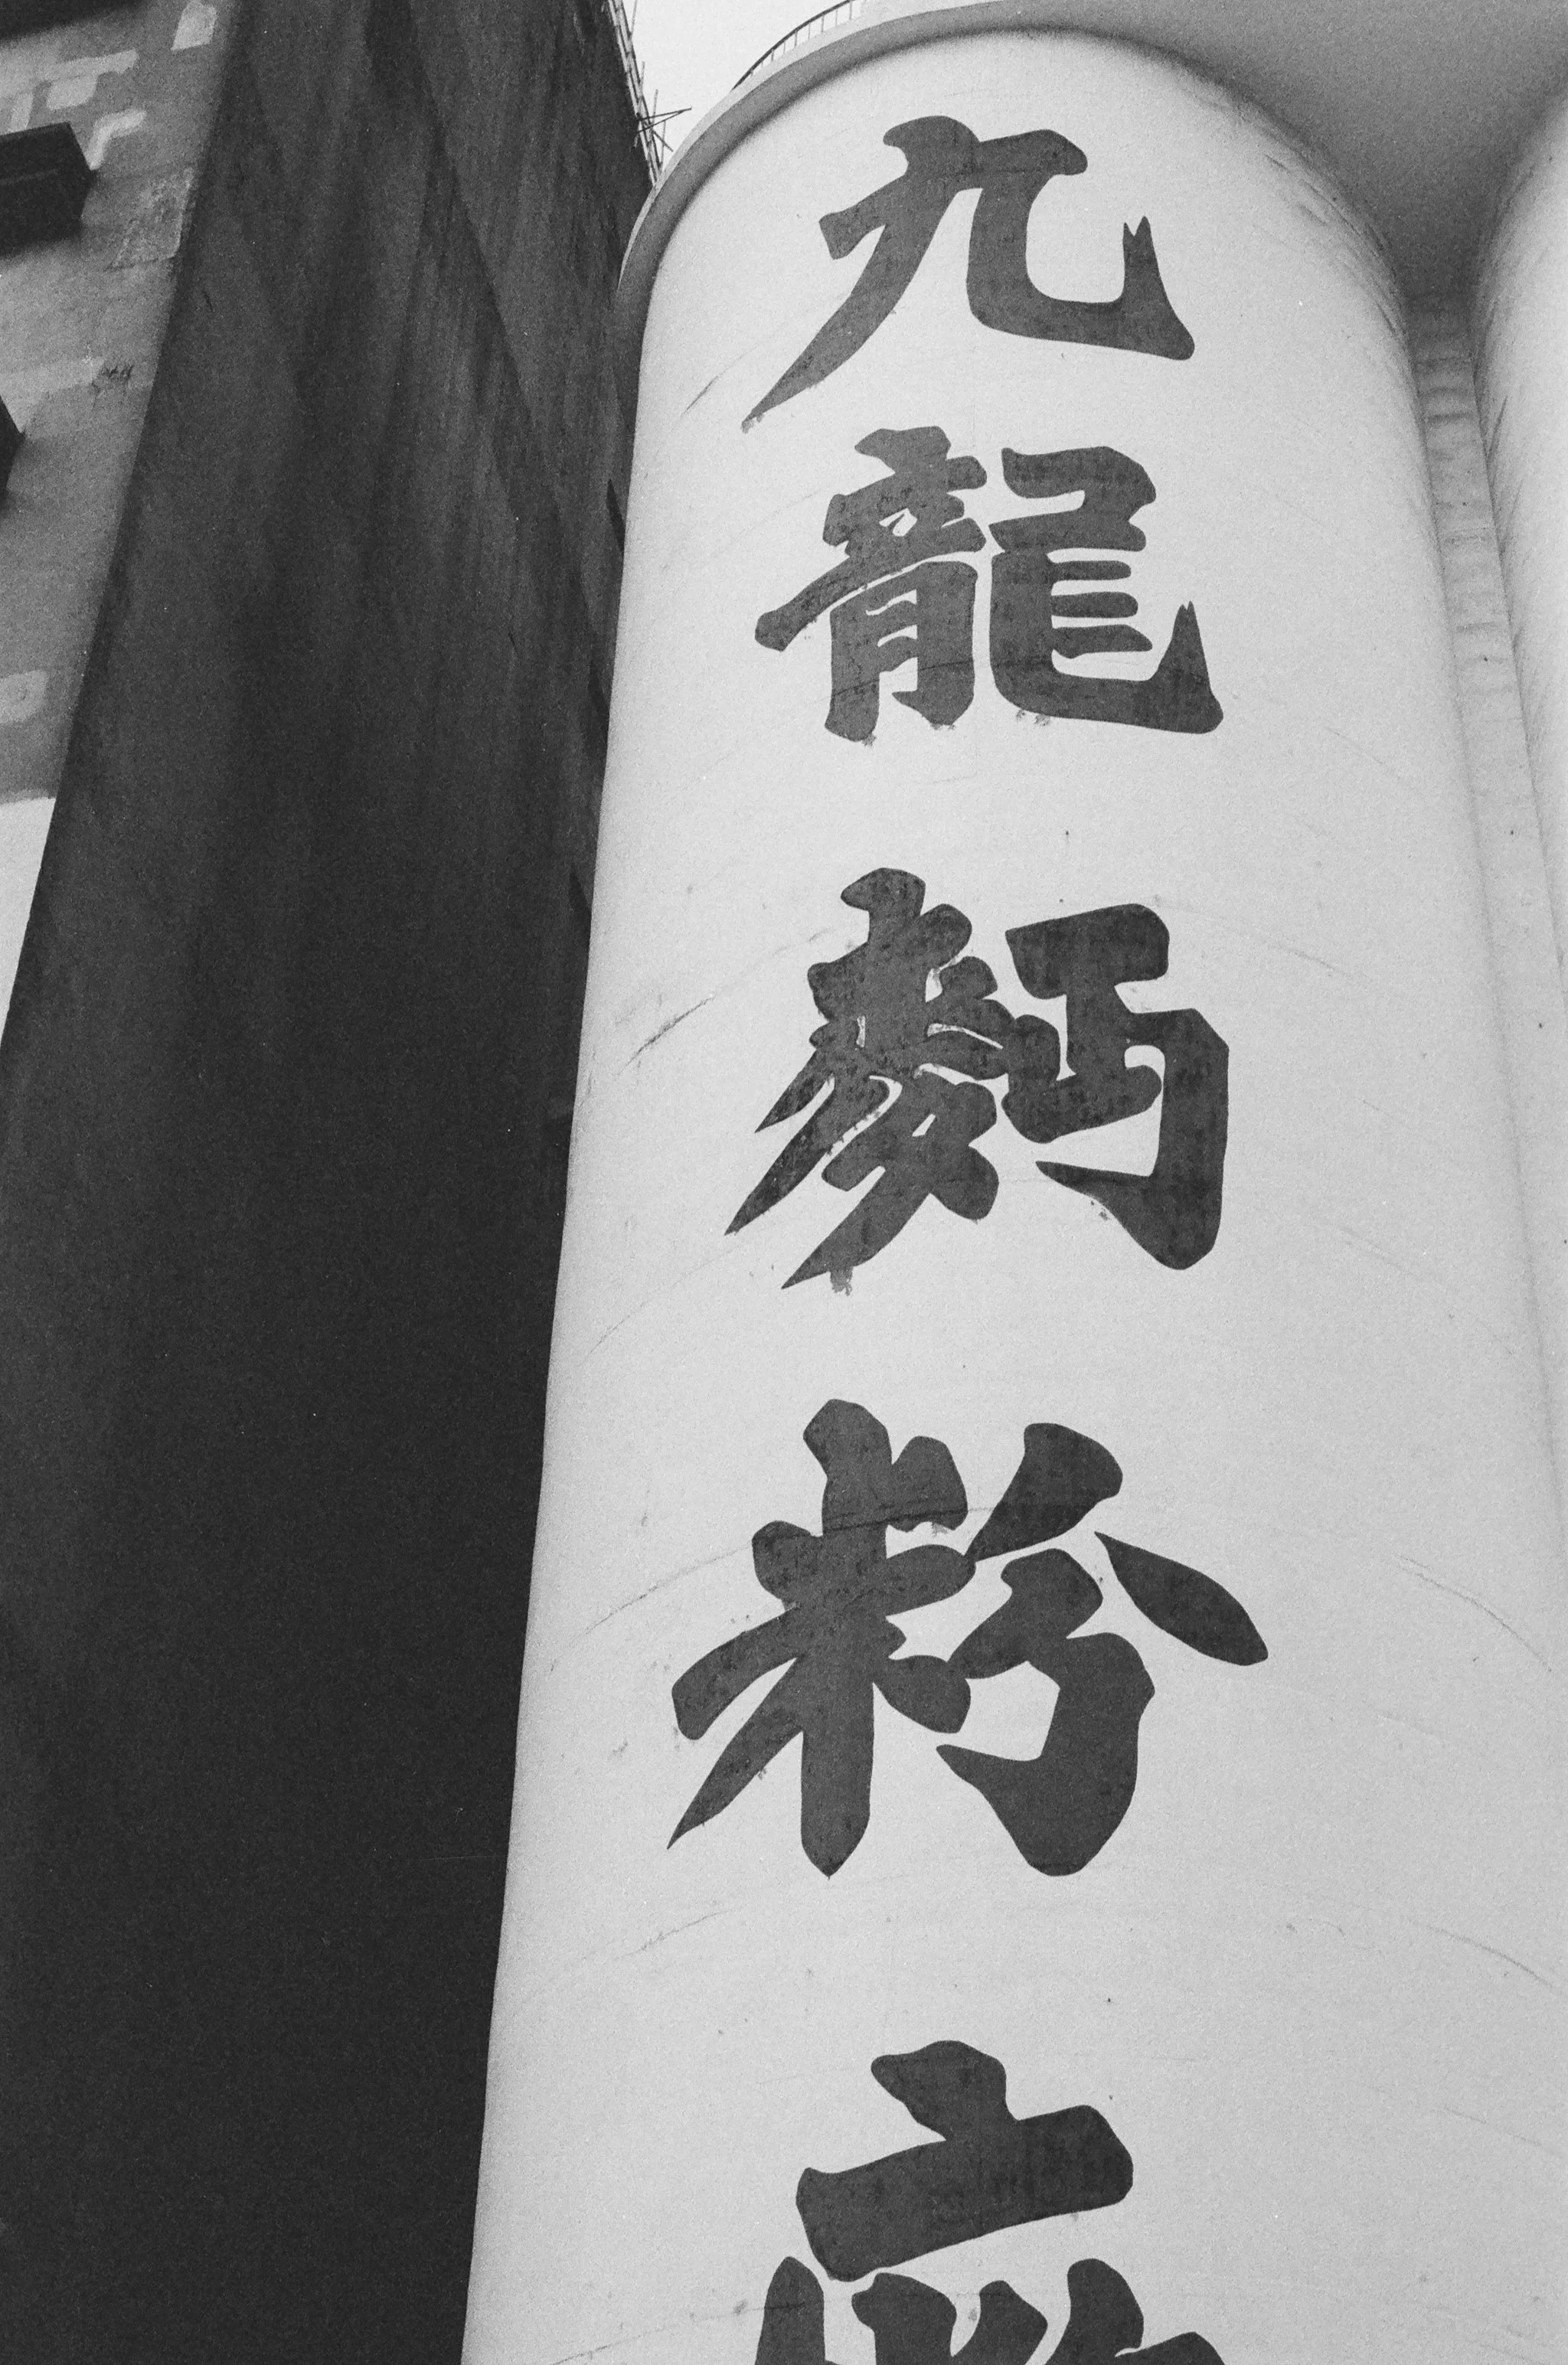 九龍麪粉廠